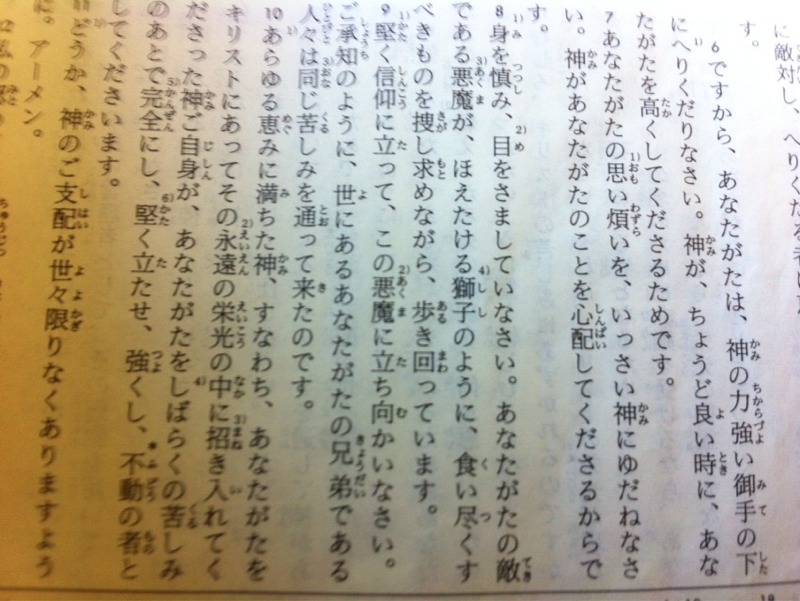 に敵対し、へりくだる者に
す。
6ですから、あなたがたは、神の力強い御手の下
にへりくだりなさい。神が、ちょうど良い時に、あな
たがたを高くしてくださるためです。
7あなたがたの思い煩いを、いっさい神にゆだねなさ
い。神があなたがたのことを心配してくださるからで
す。
8身を慎み、目をさましていなさい。あなたがたの敵
である悪魔が、ほえたける獅子のように、食い尽くす
べきものを捜し求めながら、歩き回っています。
9堅く信仰に立って、この悪魔に立ち向かいなさい。
ご承知のように、世にあるあなたがたの兄弟である
人々は同じ苦しみを通って来たのです。
10あらゆる恵みに満ちた神、すなわち、あなたがたを
キリストにあってその永遠の栄光の中に招き入れてく
ださった神ご自身が、あなたがたをしばらくの苦しみ
のあとで完全にし、堅く立たせ、強くし、不動の者と
してくださいます。
11どうか、神のご支配が世々限りなくありますよう
に。アーメン。
12私の